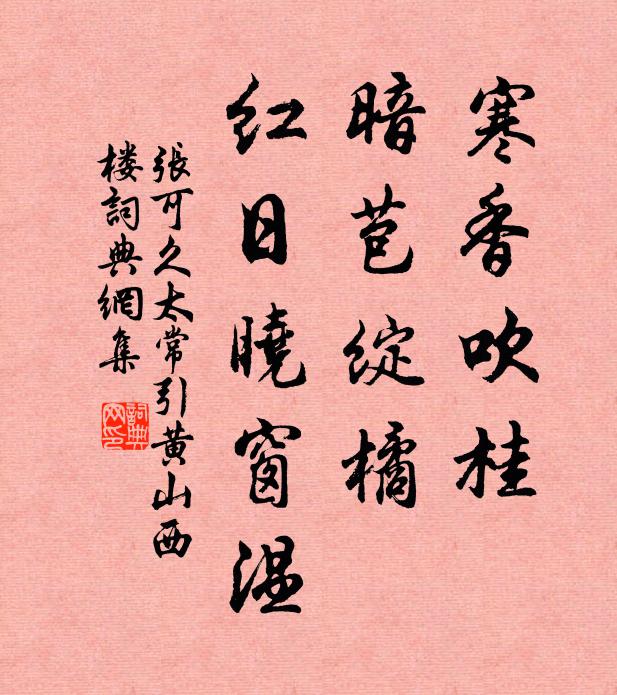 寒香吹桂
暗苞綻橘
紅日曉窗溫
張可久太常引黃山西
樓詞典網集
詞典網印